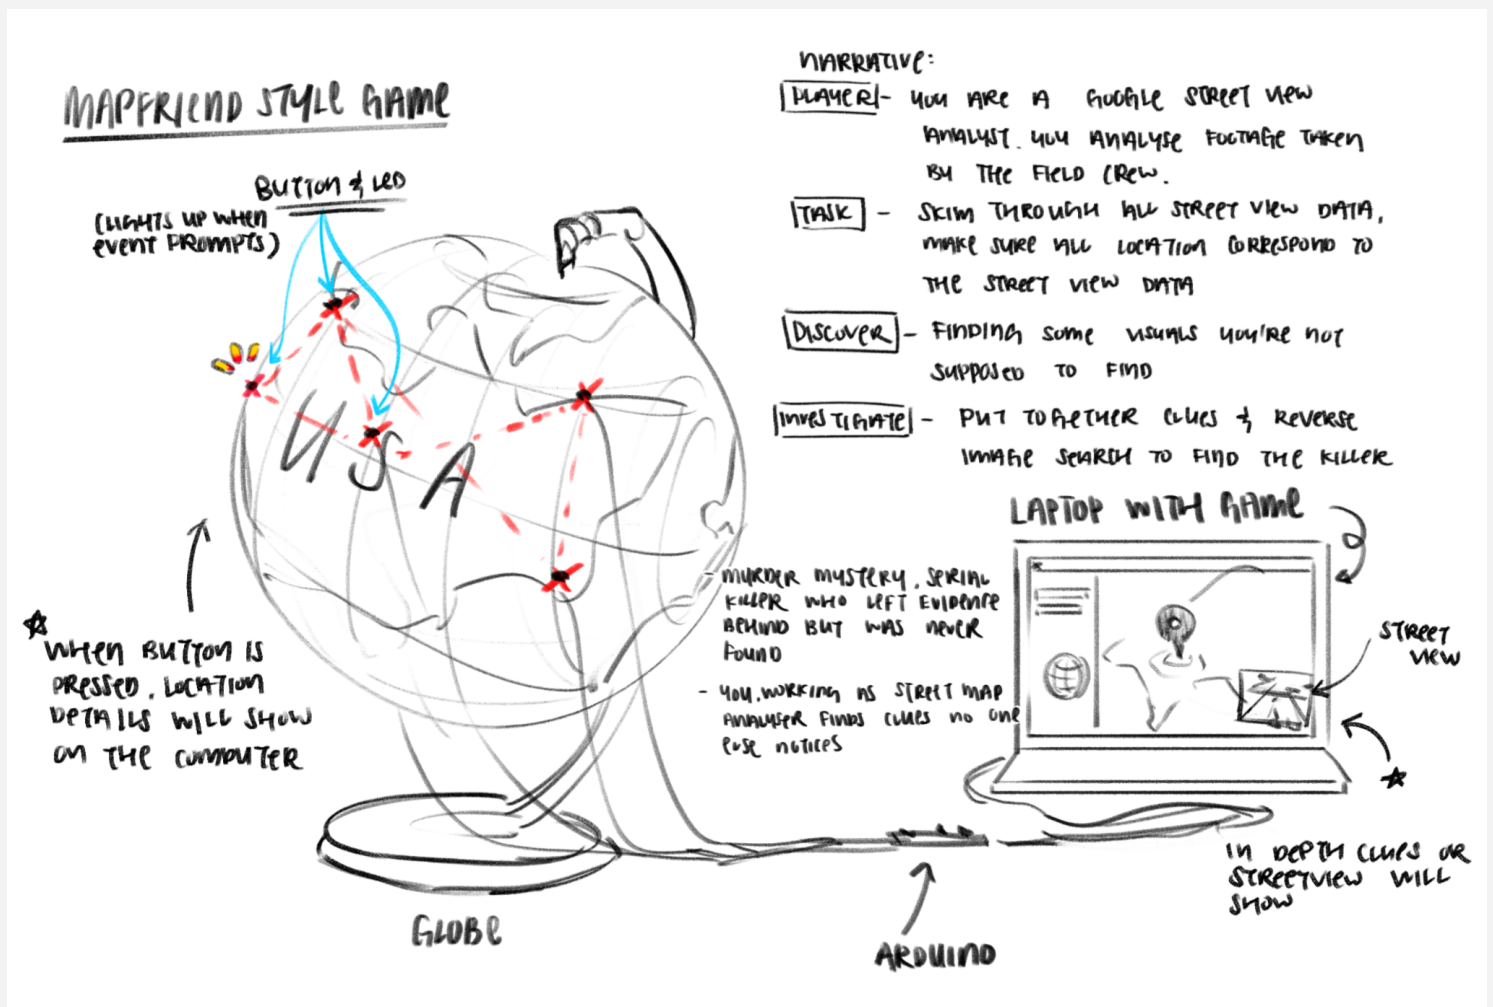 MAPFRIEND STYLE GAME
BUTTON & LED
(LIGHTS UP WHEN
EVENT PROMPTS)
USA
WHEN BUTTON IS
PRESSED, LOCATION
DETAILS WILL SHOW
ON THE COMPUTER
GLOBE
NARRATIVE:
PLAYER - YOU ARE A GOOGLE STREET VIEW
ANALYST. YOU ANALYSE FOOTAGE TAKEN
BY THE FIELD CREW.
TASK - SKIM THROUGH ALL STREET VIEW DATA,
MAKE SURE ALL LOCATION CORRESPOND TO
THE STREET VIEW DATA
DISCOVER - FINDING SOME VISUALS YOU'RE NOT
SUPPOSED TO FIND
INVESTIGATE - PUT TOGETHER CLUES & REVERSE
IMAGE SEARCH TO FIND THE KILLER
LAPTOP WITH GAME
- MURDER MYSTERY, SERIAL
KILLER WHO LEFT EVIDENCE
BEHIND BUT WAS NEVER
FOUND
- YOU, WORKING AS STREET MAP
ANALYSER FINDS CLUES NO ONE
ELSE NOTICES
STREET
VIEW
IN DEPTH CLUES OR
STREETVIEW WILL
SHOW
ARDUINO